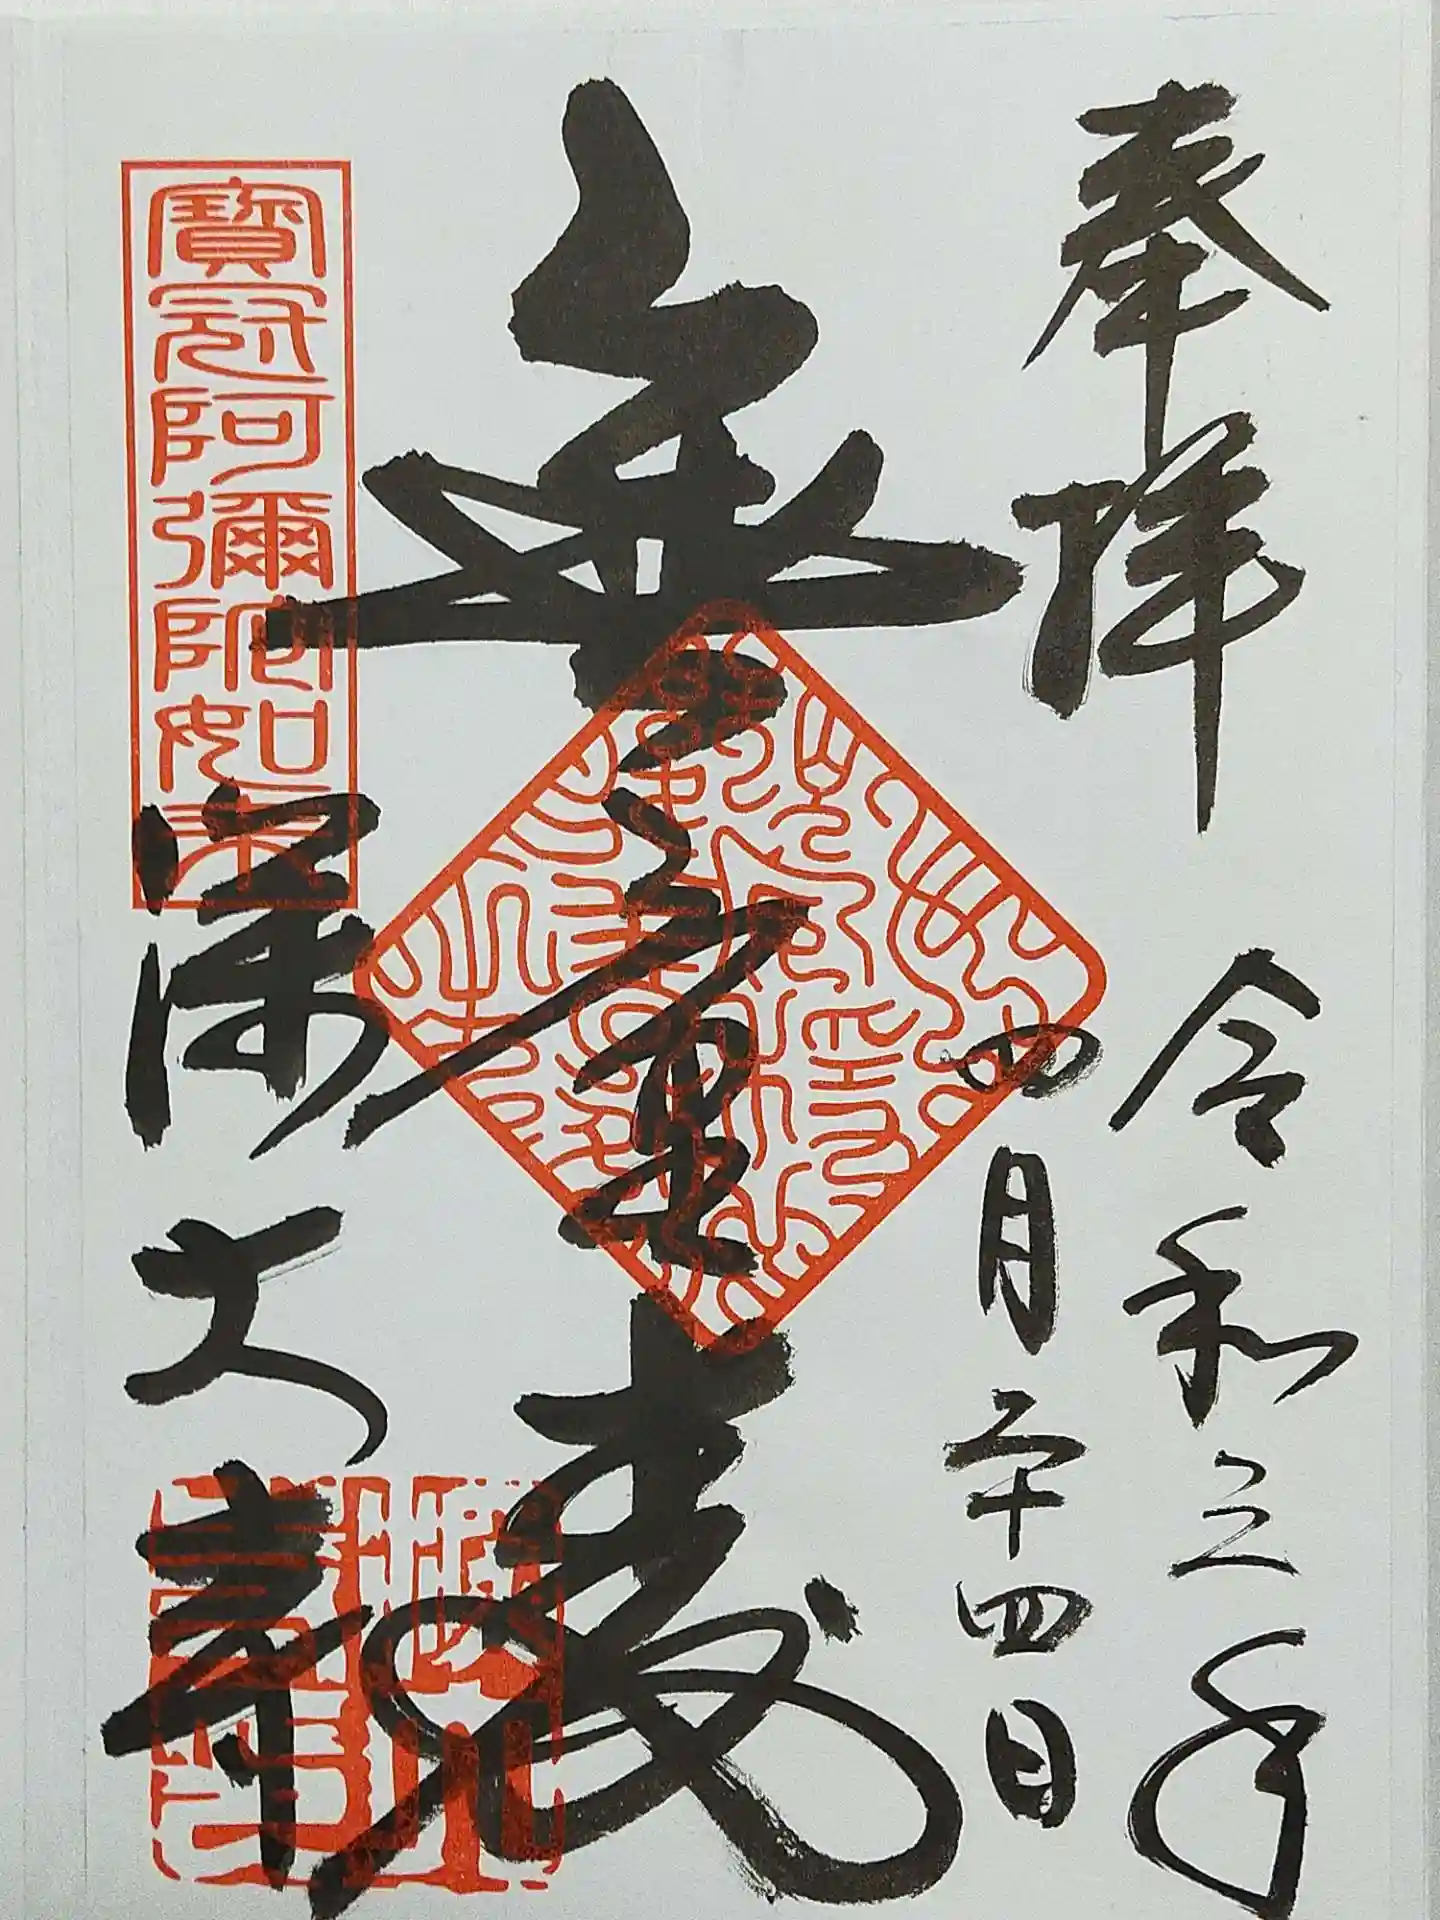 奉拝
令和三年
四月二十四日
無量壽
寶冠阿彌陀如来
深大寺